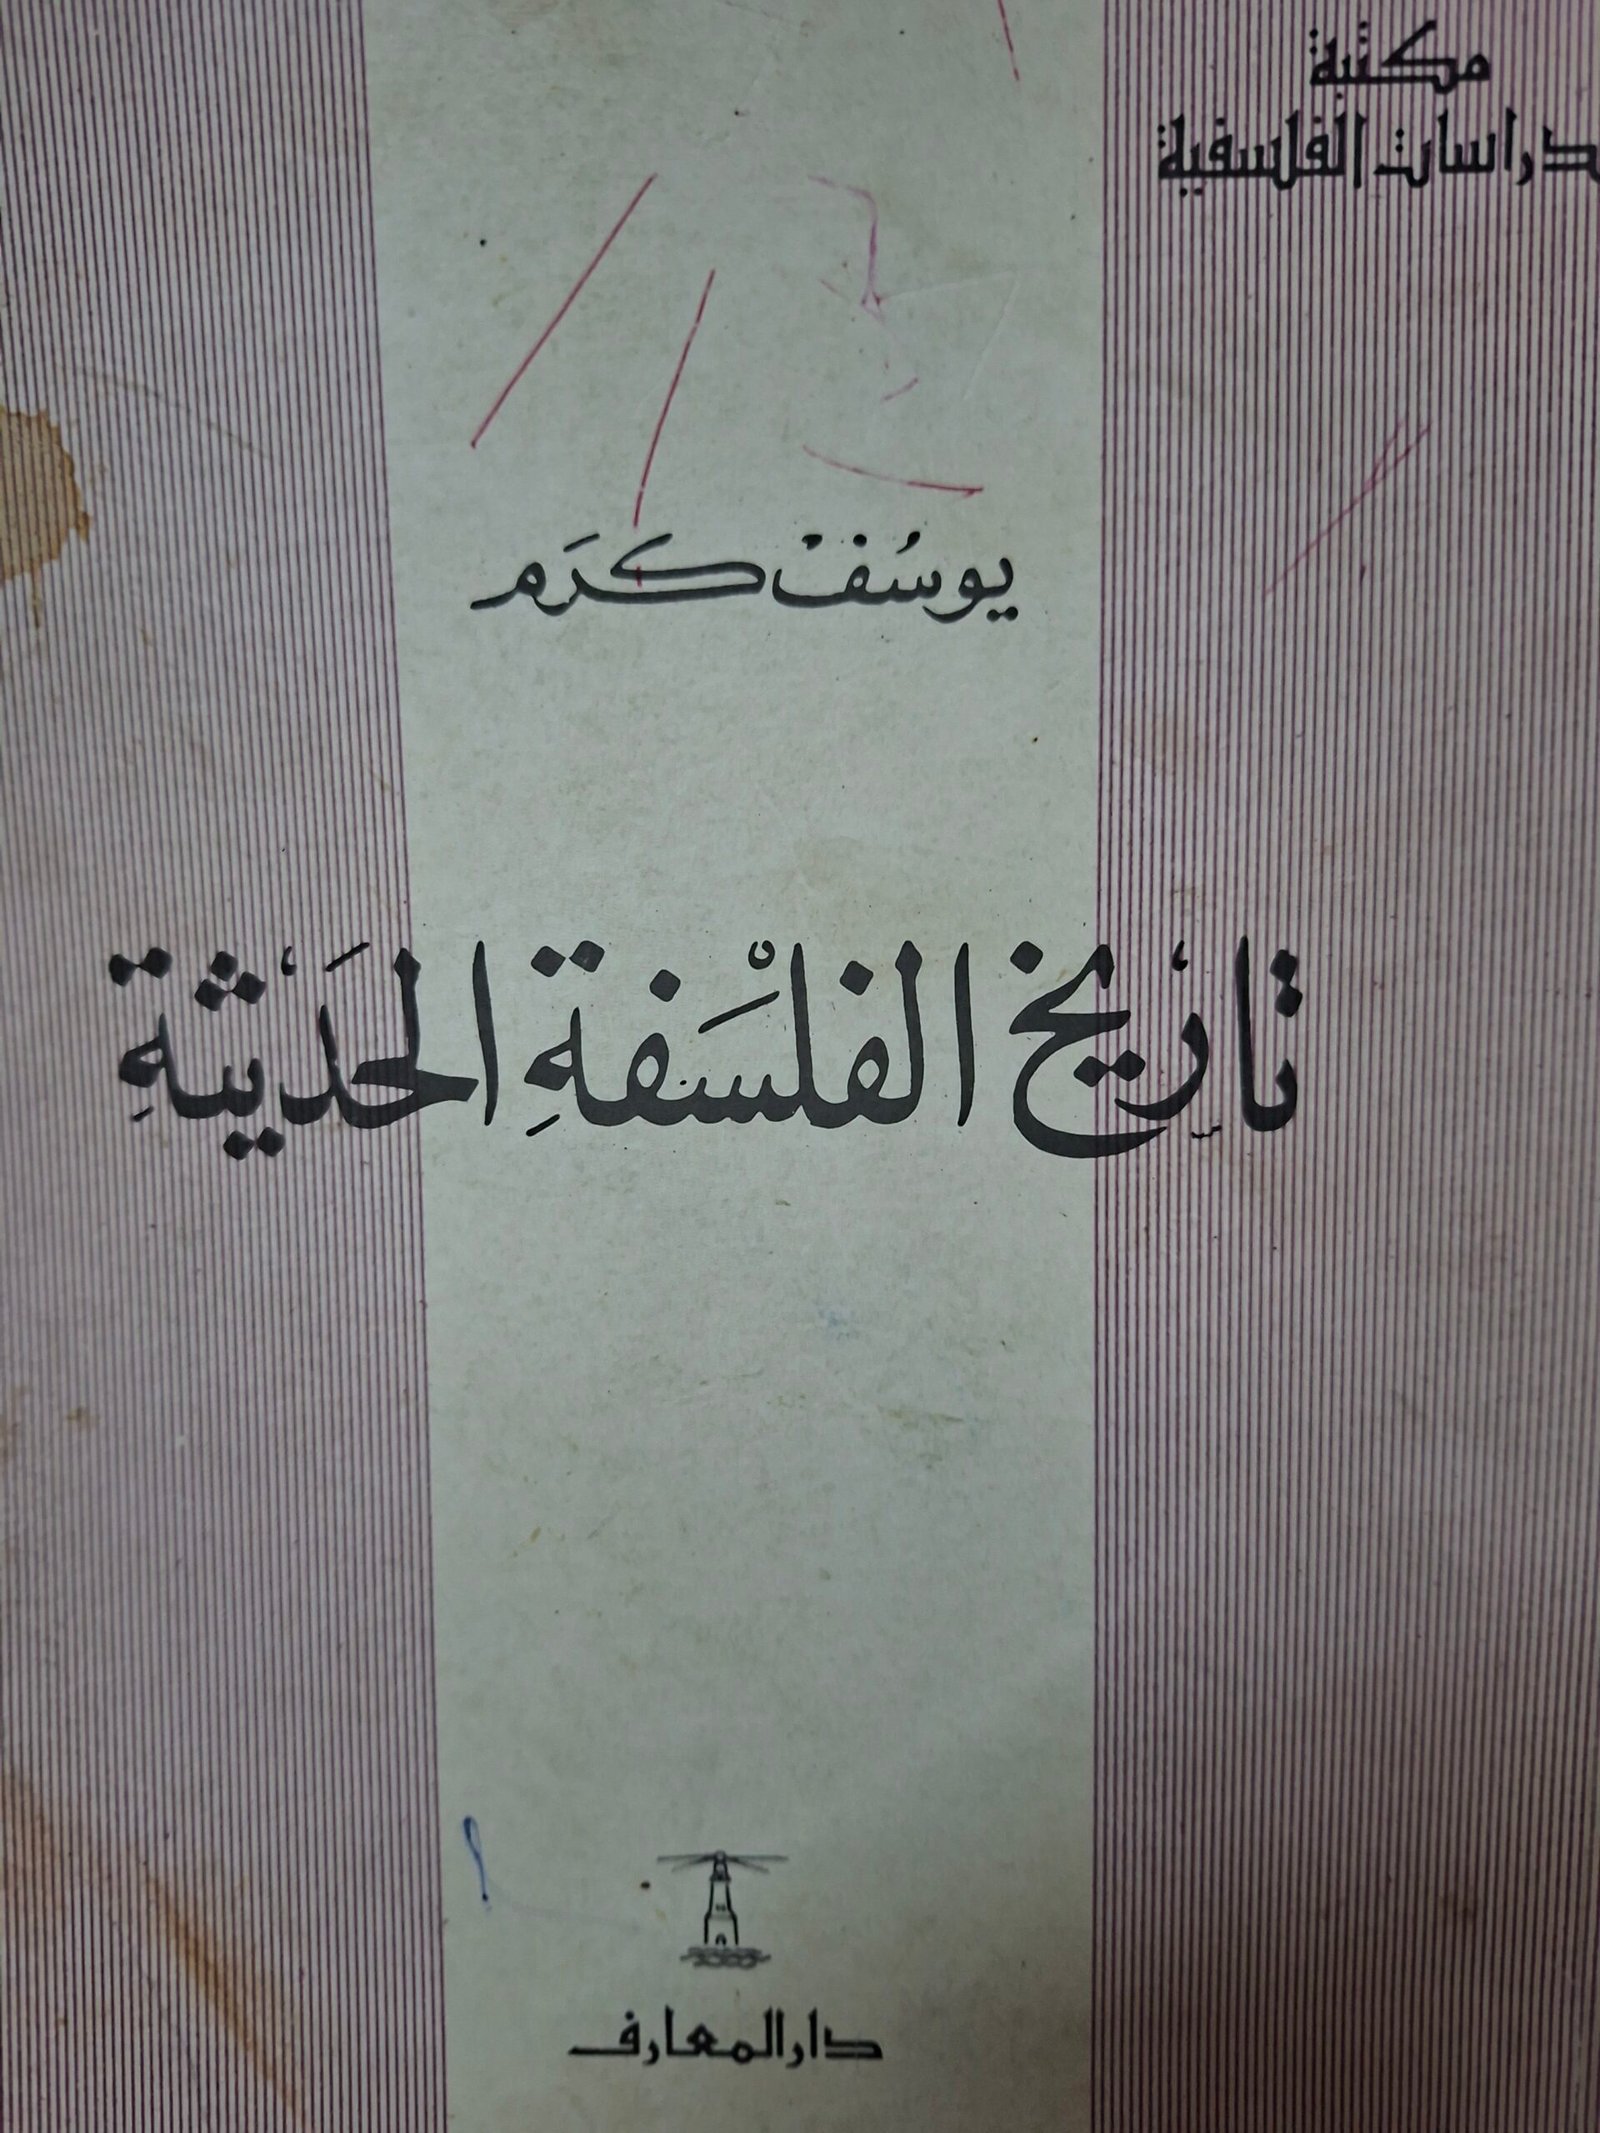 مكتبة
دراسات الفلسفية
يوسُفْ كرَم
تاريِخ الفلْسَفةِ الحَديثةِ
دار المعارف